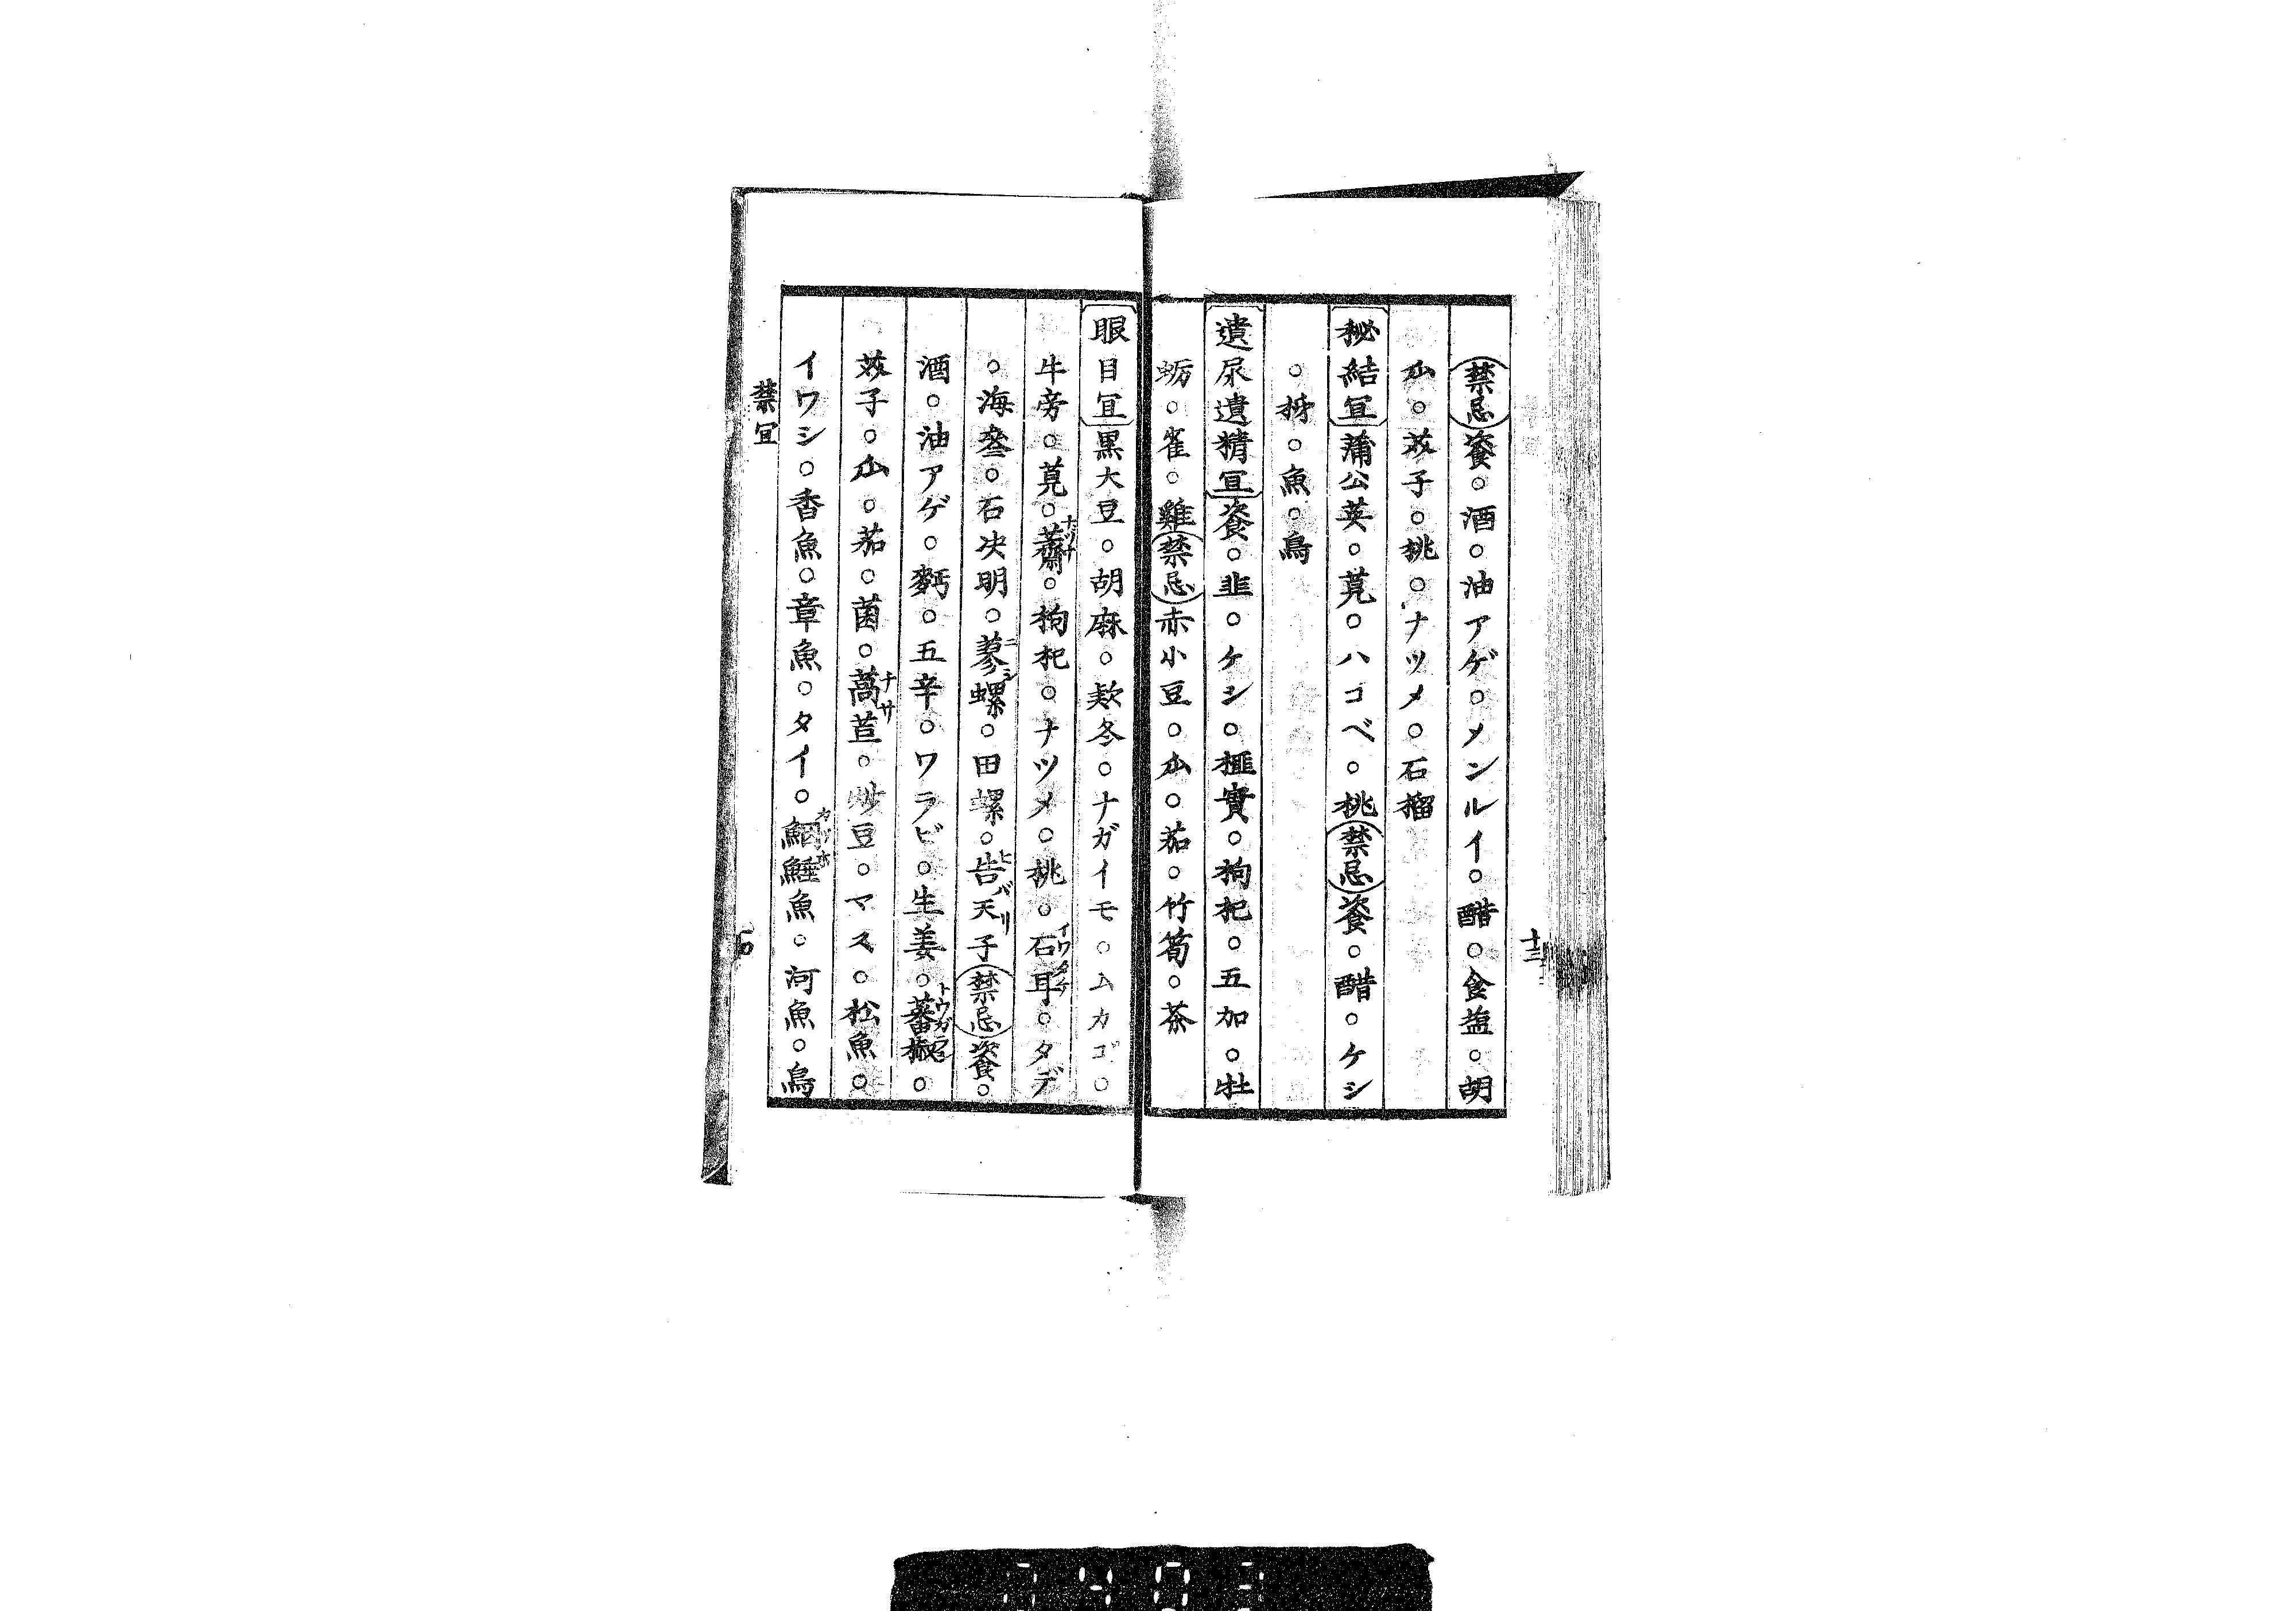 禁忌餈○酒○油アゲ○メンルイ○醋○食塩○胡
瓜○茄子○桃○ナツメ○石榴
秘結宜蒲公英○莧○ハコベ○桃禁忌餈○醋○ケシ
○柹○魚○鳥
遺尿遺精宜餈○韭○ケシ○榧實○枸杞○五加○牡
蛎○雀○雞禁忌赤小豆○瓜○茄○竹筍○茶
眼目宜黒大豆○胡麻○欵冬○ナガイモ○ムカゴ○
牛旁○莧○薺ナヅナ○枸杞○ナツメ○桃○石耳イワタケ○タデ
○海參○石决明○蓼螺ニシ○田螺○告天子ヒバリ禁忌餈○
酒○油アゲ○麪○五辛○ワラビ○生姜○蕃椒トウガラシ○
子○瓜○茄○菌○萵苣チサ○炒豆○マス○松魚○
イワシ○香魚○章魚○タイ○魚○河魚○鳥
禁宜
十三